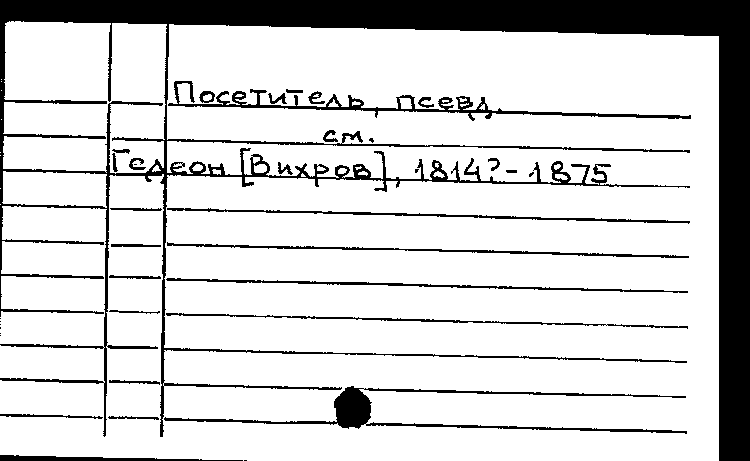 Посетитель, псевд.
см.
Гедеон [Вихров], 1814?-1875